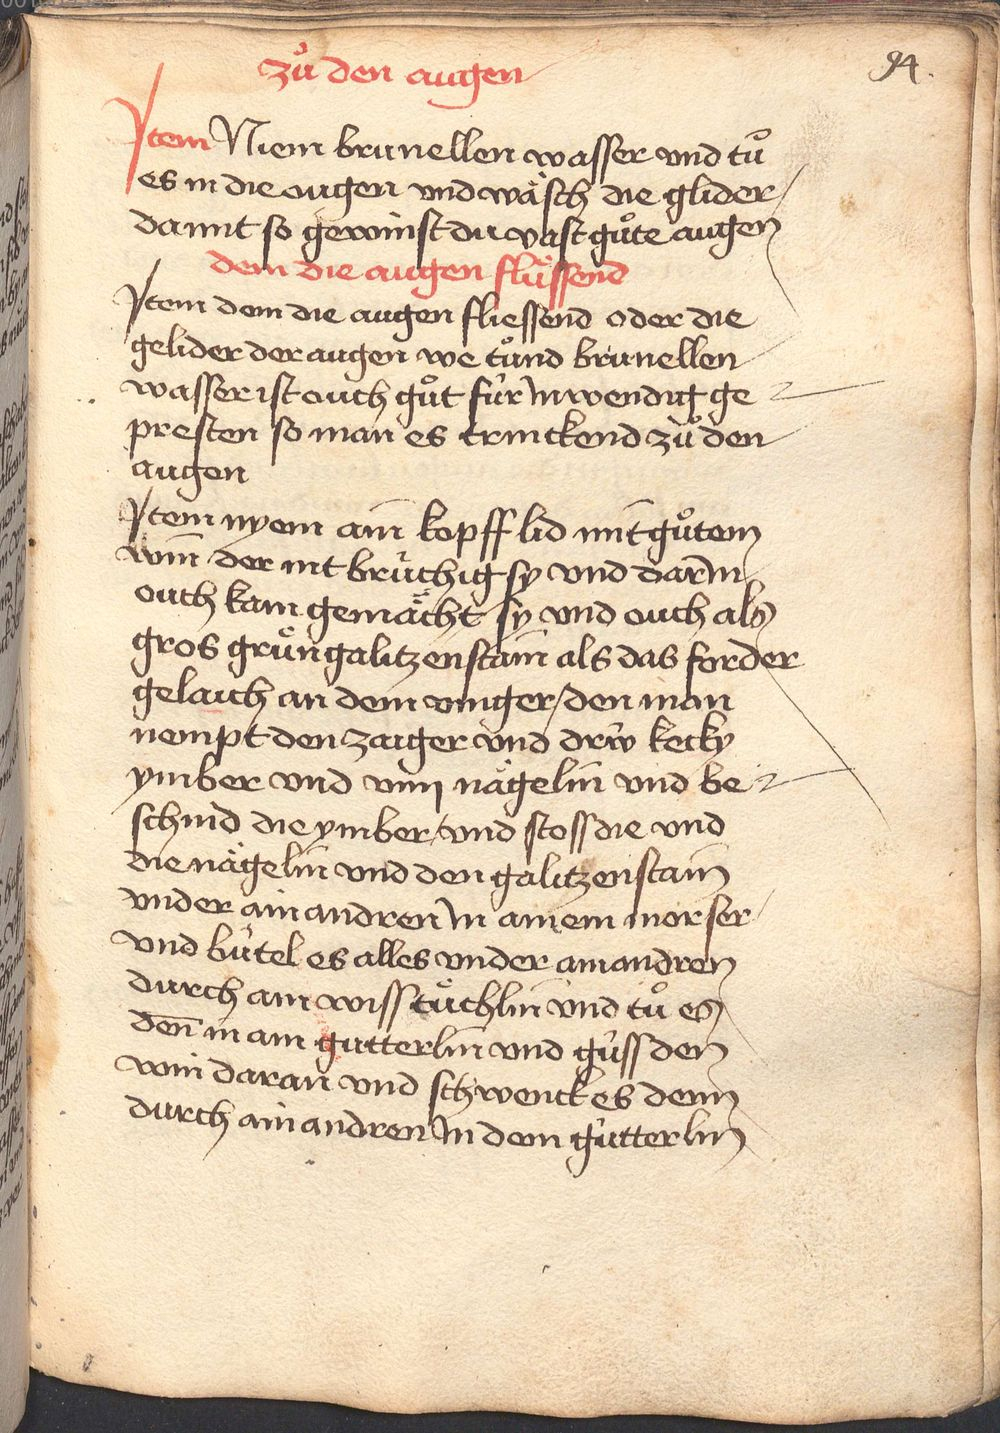 94.
zů den augen
Jtem Niem brunellen wasser vnd tů
es in die ougen vnd wäsch die glider
damit so gewinst du vast gůte augen
dem die augen flüssend
Jtem dem die augen fliessend oder die
gelider der augen we tůnd brunellen
wasser ist ouch gůt für Inwendig ge
presten so man es trinckend zů den
augen
Jtem nyem ain kopff lid mit gůtem
win der nit brüchig sy vnd darin
ouch kain gemächt sy vnd ouch als
gros grün galitzenstain als das forder
gelaich an dem vinger / den man
nempt den zaiger vnd drw kecky
ymber vnd viiij nägelin vnd be
schnid die ymber / vnd stoss die vnd
die nägelin vnd den galitzenstain
vnder ain andren In ainem morser
vnd bütel es alles vnder ain andren
durch ain wiss tüchlin vnd tů es
den̄ in ain gutterlin vnd güss den
win daran vnd schwenck es denn
durch ain andren In dem gütterlin